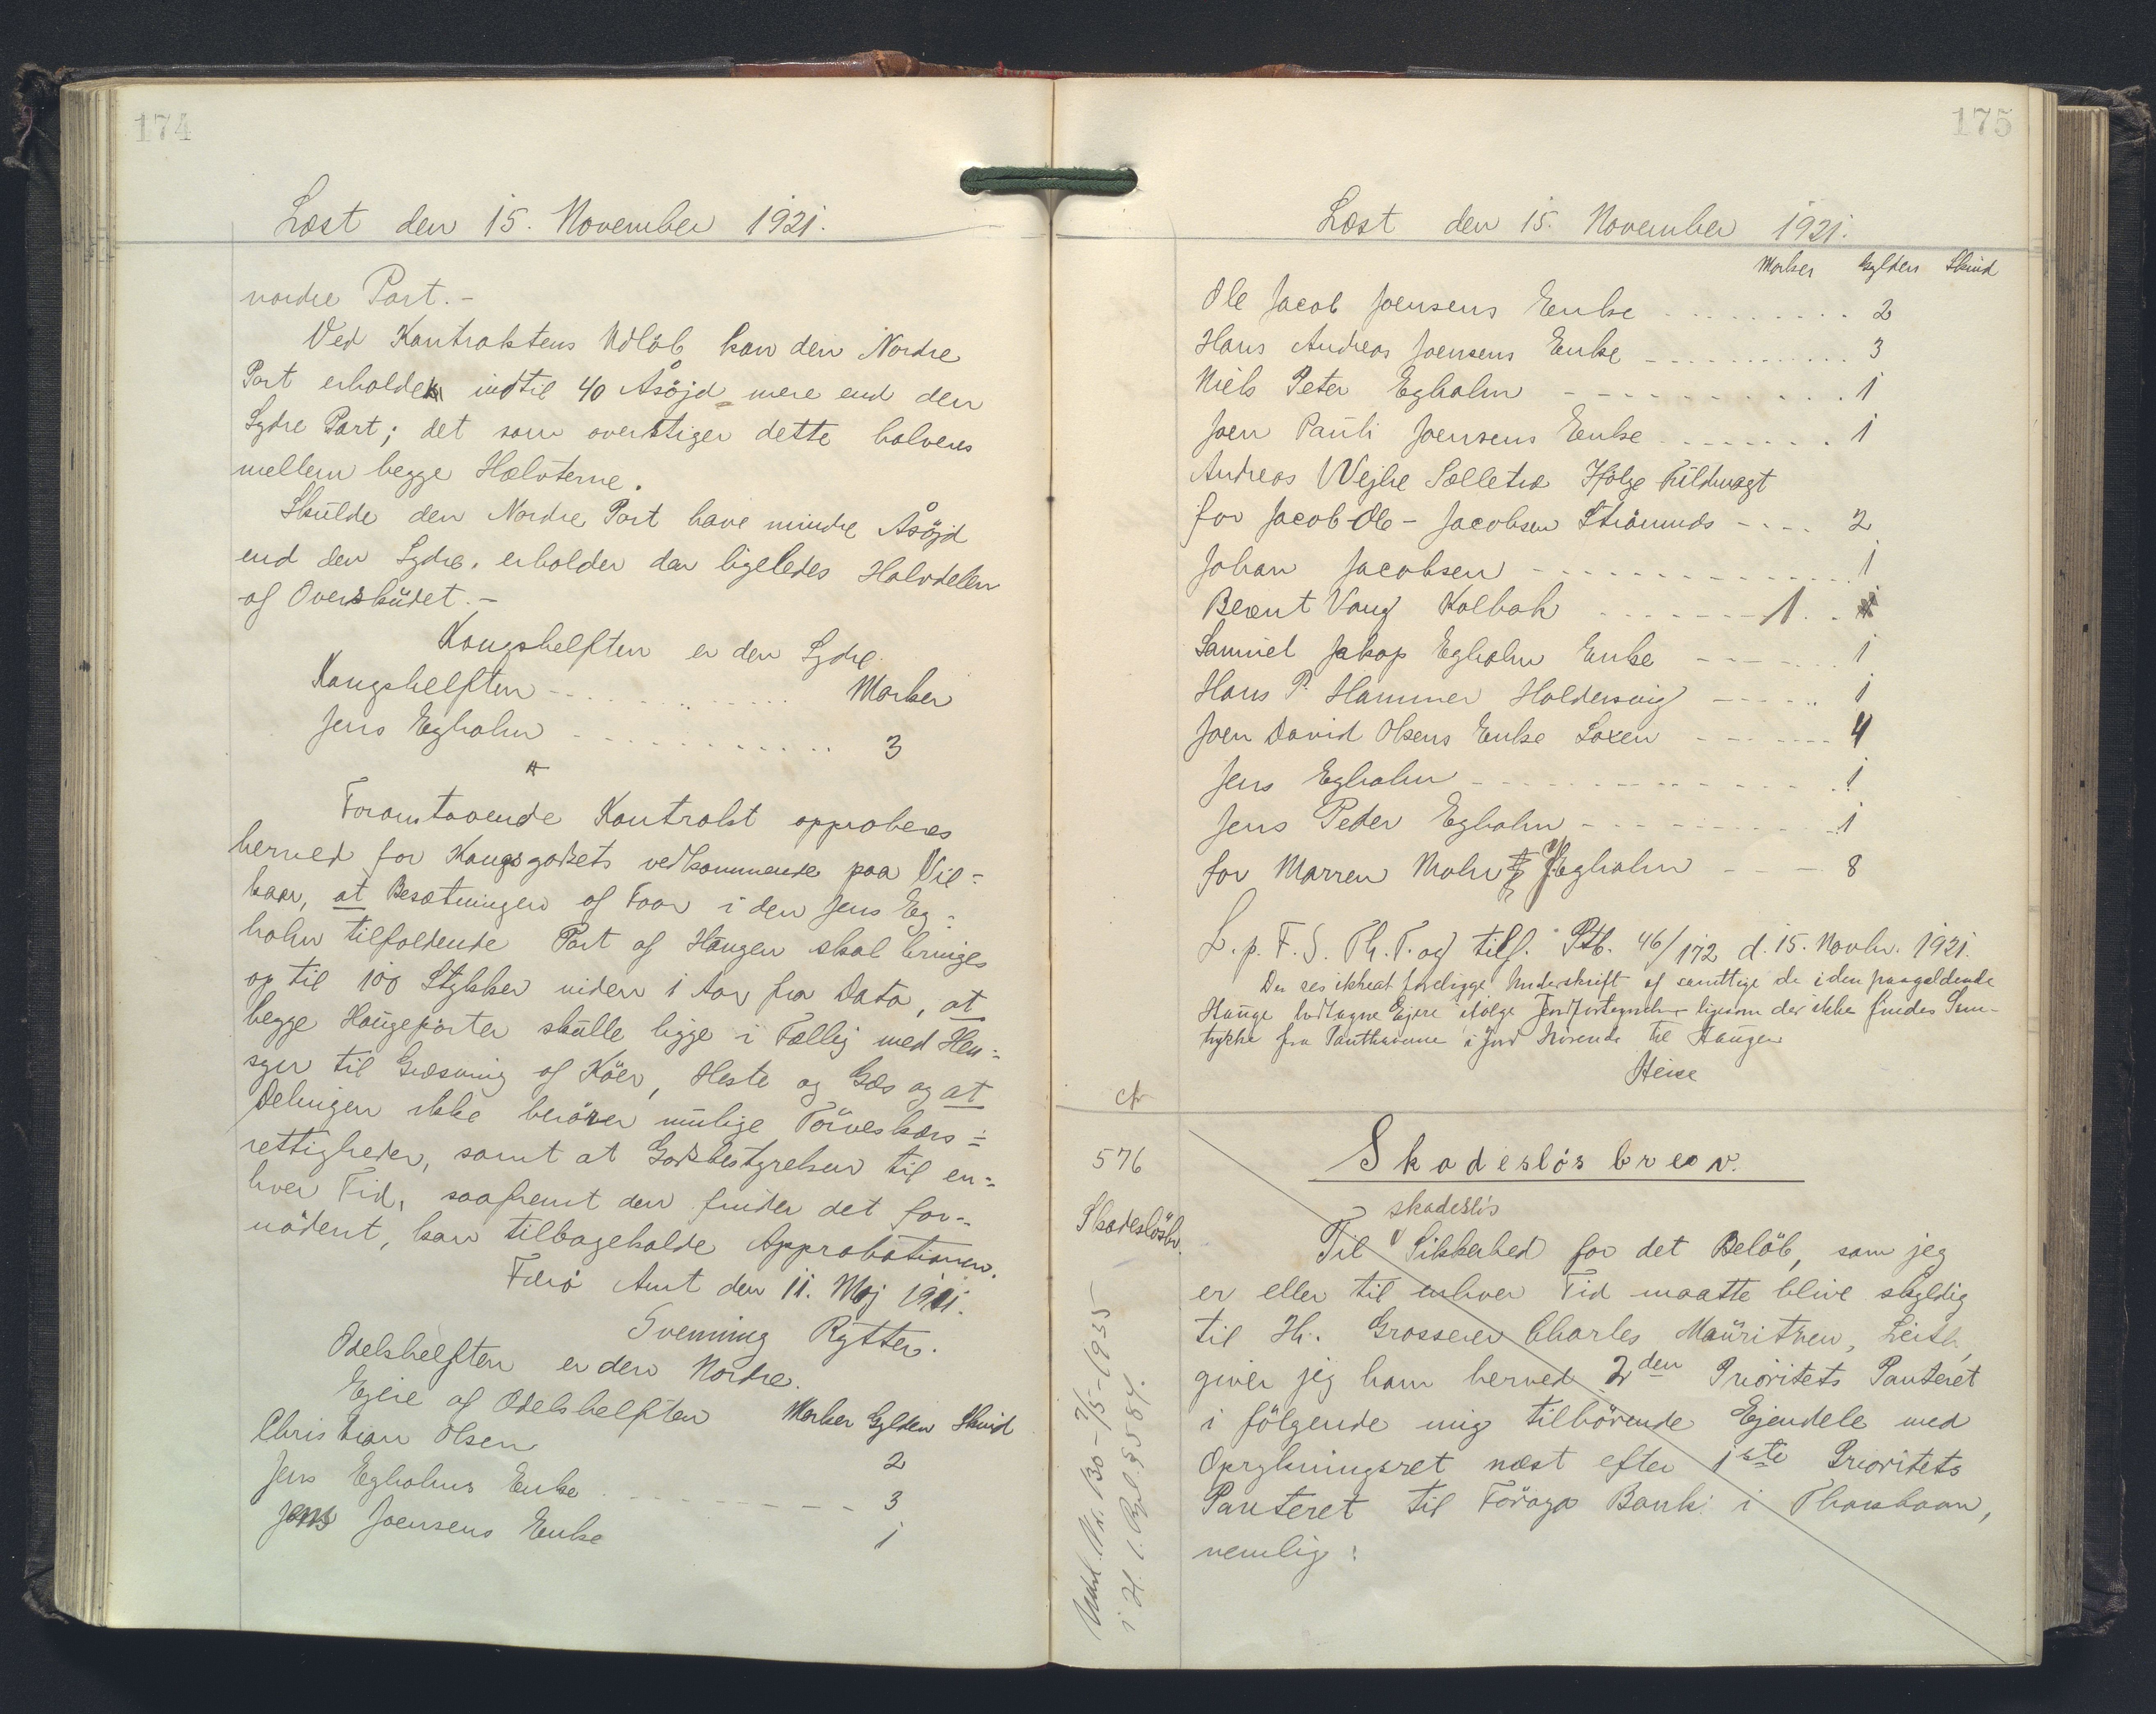 174
Læst den 15. November 1921.
nordre Part.-
Ved Kontraktens Udløb kan den Nordre
Part erholde indtil 40 Åsöjd mere end den
Sydre Part; det som overstiger dette halveres
mellem begge Halvterne.
Skulde den Nordre Part have mindre Åsöjd
end den Sydre, erholder den ligeledes Halvdelen
af Overskudet.-
Kongshelften er den Sydre.
Kongshelften - - . . . . . . . . . Marker
Jens Egholm - . . . . . . . . . 3
Foranstaaende Kontrakt approberes
herved for Kongsgodsets vedkommende paa Vil=
kaar, at Besætningen af Faar i den Jens Eg=
holm tilfaldende Part af Haugen skal bringes
op til 100 Stykker inden 1 Aar fra Dato, at
begge Haugeparter skulle ligge i Fællig med Hen=
syn til Græsning af Köer, Heste og Gæs og at
Delingen ikke berörer mulige Törveskærs=
rettigheder, samt at Godsbestyrelsen til en=
hver Tid, saafremt den finder det for=
nødent, kan tilbagekalde Approbationen.
Færø Amt den 11. Maj 1911.
Svenning Rytter.
Odelshelften er den Nordre.
Ejere af Odelshelften Marker Gylden Skind
Christian Olsen 2
Jens Egholms Enke . - - - - - - - 3
Jens Joensens Enke 1
175
Læst den 15. November 1921.
Marker Gylden Skind
Ole Jacob Joensens Enke . . . . . . . . . 2
Hans Andreas Joensens Enke - . . . . . . . . 3
Niels Peter Egholm - - - . . . . . . 1
Joen Pauli Joensens Enke . . . . . . . 1
Andreas Wejhe Sælletræ Ifölge Fuldmagt
for Jacob Ole - Jacobsen Strömnæs - . . . 2
Johan Jacobsen - . . . . . . . . . 1
Berent Vang Kolbak . . . . . . 1 . .
Samuel Jakop Egholm Enke - - - . . . 1
Hans P. Hammer Haldersvig - - - . . 1
Joen David Olsens Enke Saxen - - - . . . 4
Jens Egholm - . . . . . . . . . 1
Jens Peder Egholm - - . . . . . . 1
for Marren Mohr Egholm - - - 8
L. p. F. S. Th. T. og tilf. Ptb. 46/172 d. 15. Novbr. 1921.
Der ses ikke at foreligge Underskrift af samtlige de i den paagældende
Hauge lodtagne Ejere ifølge Jordfortegnelsen ligesom der ikke findes Sam-
tykke fra Panthaverne i Jord hörende til Haugen
Heise
576
Skadeslösbr.
Skadeslösbrev.
skadeslös
Til Sikkerhed for det Beløb, som jeg
er eller til enhver Tid maatte blive skyldig
til Hr. Grosserer Charles Mauritzen, Leith,
giver jeg ham herved 2den Prioritets Panteret
i følgende mig tilhörende Ejendele med
Oprykningsret næst efter 1ste Prioritets
Panteret til Föroya Banki i Thorshavn,
nemlig: